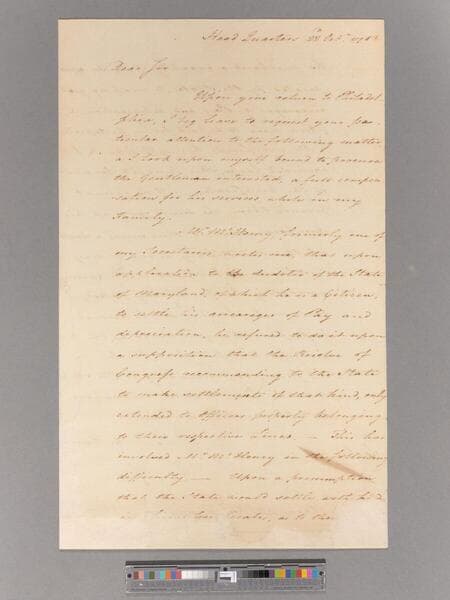 Head Quarters 23d Octr 1782
Dear Sir
Upon your return to Philadel-
phia, I beg leave to request your par
ticular attention to the following matter
as I look upon myself bound to procure
the Gentleman interested, a full compen-
sation for his services while in my
Family.
Mr McHenry formerly one of
my Secretaries, writes me, that upon
application to the Auditor of the State
of Maryland, of which he is a Citizen,
to settle his arrearages of Pay and
depreciation, he refused to do it upon
a supposition that the Resolve of
Congress recommending to the State
to make settlements of that kind, only
extended to Officers properly belonging
to their respective Lines. — This has
involved Mr McHenry in the following
difficulty — Upon a presumption
that the State would settle with him
as to the